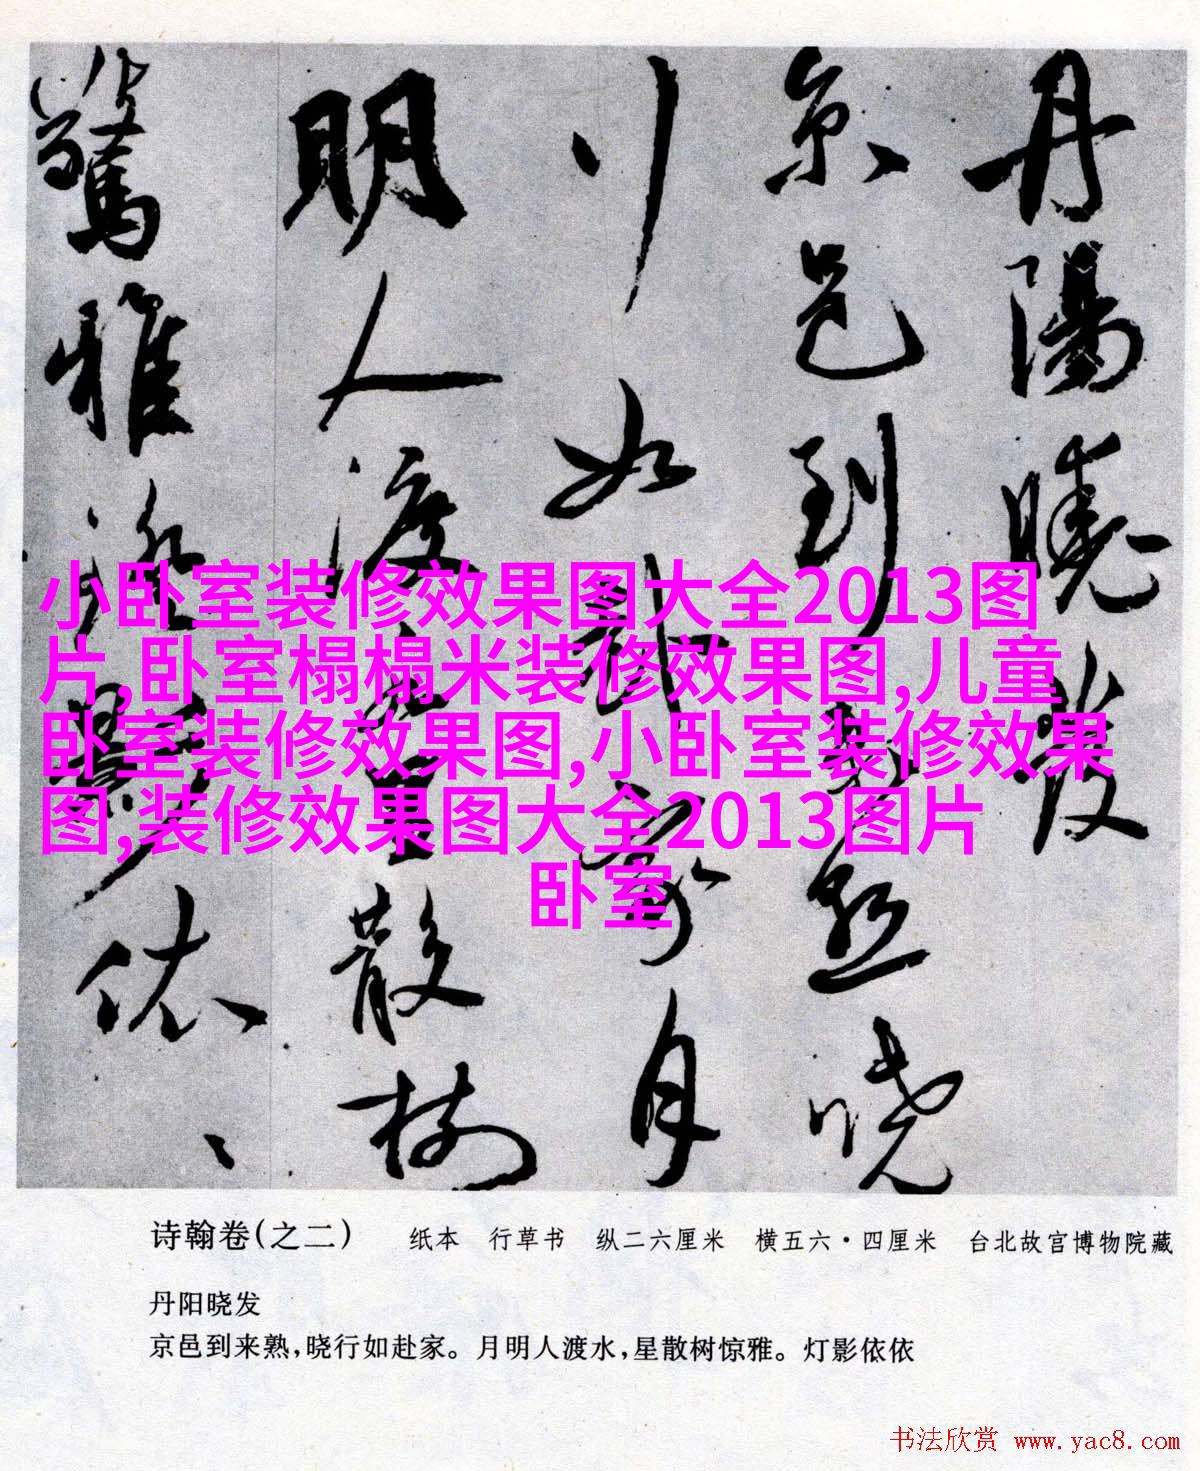 丹陽曉發
京邑到来熟曉
行如赴家月
明人渡水星散樹
驚雅燈影依、
小卧室装修效果图大全2013图
片,卧室榻榻米装修效果图,儿童
卧室装修效果图,小卧室装修效果
图,装修效果图大全2013图片
卧室
诗翰卷(之二) 纸本 行草书 纵二六厘米 横五六·四厘米 台北故宫博物院藏
丹阳晓发
京邑到来熟，晓行如赴家。月明人渡水，星散树惊雅。灯影依依
书法欣赏 www.yac8.com